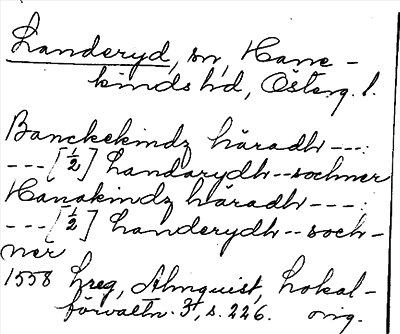 Landeryd, sn, Hane-
kinds hd, Österg. l.
Banckekindz häradh ---:
---[½] Landarydh--sochner
Hanakindz häradh ---:
---[½] Landerydh--soch-
ner
1558 Lreg, Almquist, Lokal-
förvaltn. F, s. 226. orig.